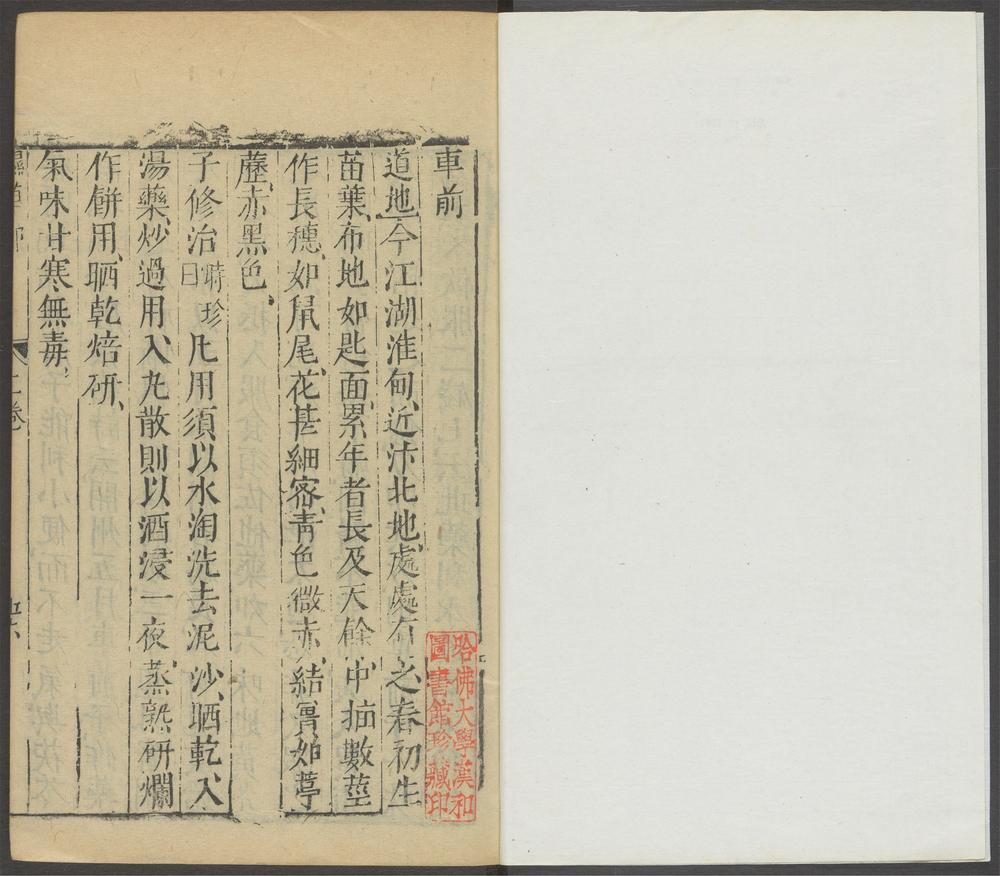 車前
道地、今江湖淮甸、近汴北地、處處有之、春初生
苗葉、布地如匙面、累年者長及尺餘、中抽數莖
作長穗、如鼠尾、花甚細密、青色微赤、結實如葶
藶、赤黑色、
子修治時珍曰凡用須以水淘洗去泥沙、晒乾、入
湯藥、炒過用、入丸散則以酒浸一夜、蒸熟研爛
作餅用、晒乾焙研、
氣味甘寒、無毒、
二卷
哈佛大學漢和
圖書館珍藏印